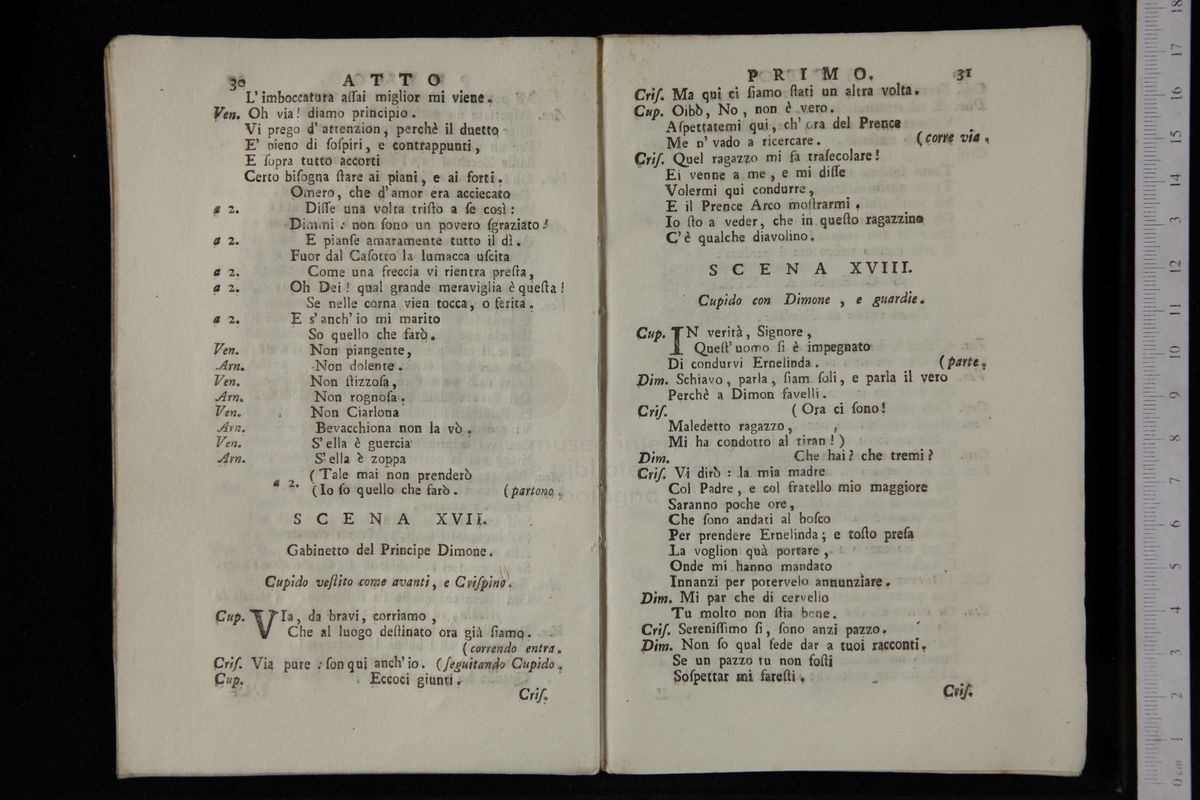 30 ATTO
L' imboccatura aſſai miglior mi viene.
Ven. Oh via! diamo principio.
Vi prego d' attenzion, perchè il duetto
E' pieno di ſoſpiri, e contrappunti,
E ſopra tutto accorti
Certo biſogna ſtare ai piani, e ai forti.
Omero, che d'amor era acciecato
a 2. Diſſe una volta triſto a ſe così:
Dimmi: non ſono un povero ſgraziato!
a 2. E pianſe amaramente tutto il dì.
Fuor dal Caſotto la lumacca uſcita
a 2. Come una freccia vi rientra preſta,
a 2. Oh Dei! qual grande meraviglia è queſta!
Se nelle corna vien tocca, o ferita.
a 2. E s'anch'io mi marito
So quello che farò.
Ven. Non piangente,
Arn. Non dolente.
Ven. Non ſtizzoſa,
Arn. Non rognoſa.
Ven. Non Ciarlona
Arn. Bevacchiona non la vò.
Ven. S'ella è guercia
Arn. S'ella è zoppa
a 2. (Tale mai non prenderò
(Io ſo quello che farò. (partono.
SCENA XVII.
Gabinetto del Principe Dimone.
Cupido veſtito come avanti, e Criſpino.
Cup. VIa, da bravi, corriamo,
Che al luogo deſtinato ora già ſiamo.
(correndo entra.
Criſ. Via pure: ſon qui anch'io. (ſeguitando Cupido.
Cup. Eccoci giunti.
Criſ.
PRIMO. 31
Criſ. Ma qui ci ſiamo ſtati un altra volta.
Cup. Oibò, No, non è vero.
Aſpettatemi qui, ch' ora del Prence
Me n' vado a ricercare. (corre via.
Criſ. Quel ragazzo mi fa traſecolare!
Ei venne a me, e mi diſſe
Volermi qui condurre,
E il Prence Arco moſtrarmi.
Io ſto a veder, che in queſto ragazzino
C'è qualche diavolino.
SCENA XVIII.
Cupido con Dimone, e guardie.
Cup. IN verità, Signore,
Queſt'uomo ſi è impegnato
Di condurvi Ernelinda. (parte.
Dim. Schiavo, parla, ſiam ſoli, e parla il vero
Perchè a Dimon favelli.
Criſ. (Ora ci ſono!
Maledetto ragazzo,
Mi ha condotto al tiran!)
Dim. Che hai? che tremi?
Criſ. Vi dirò: la mia madre
Col Padre, e col fratello mio maggiore
Saranno poche ore,
Che ſono andati al boſco
Per prendere Ernelinda; e toſto preſa
La voglion quà portare,
Onde mi hanno mandato
Innanzi per potervelo annunziare.
Dim. Mi par che di cervello
Tu molto non ſtia bene.
Criſ. Sereniſſimo ſi, ſono anzi pazzo.
Dim. Non ſo qual fede dar a tuoi racconti,
Se un pazzo tu non foſti
Soſpettar mi fareſti.
Criſ.